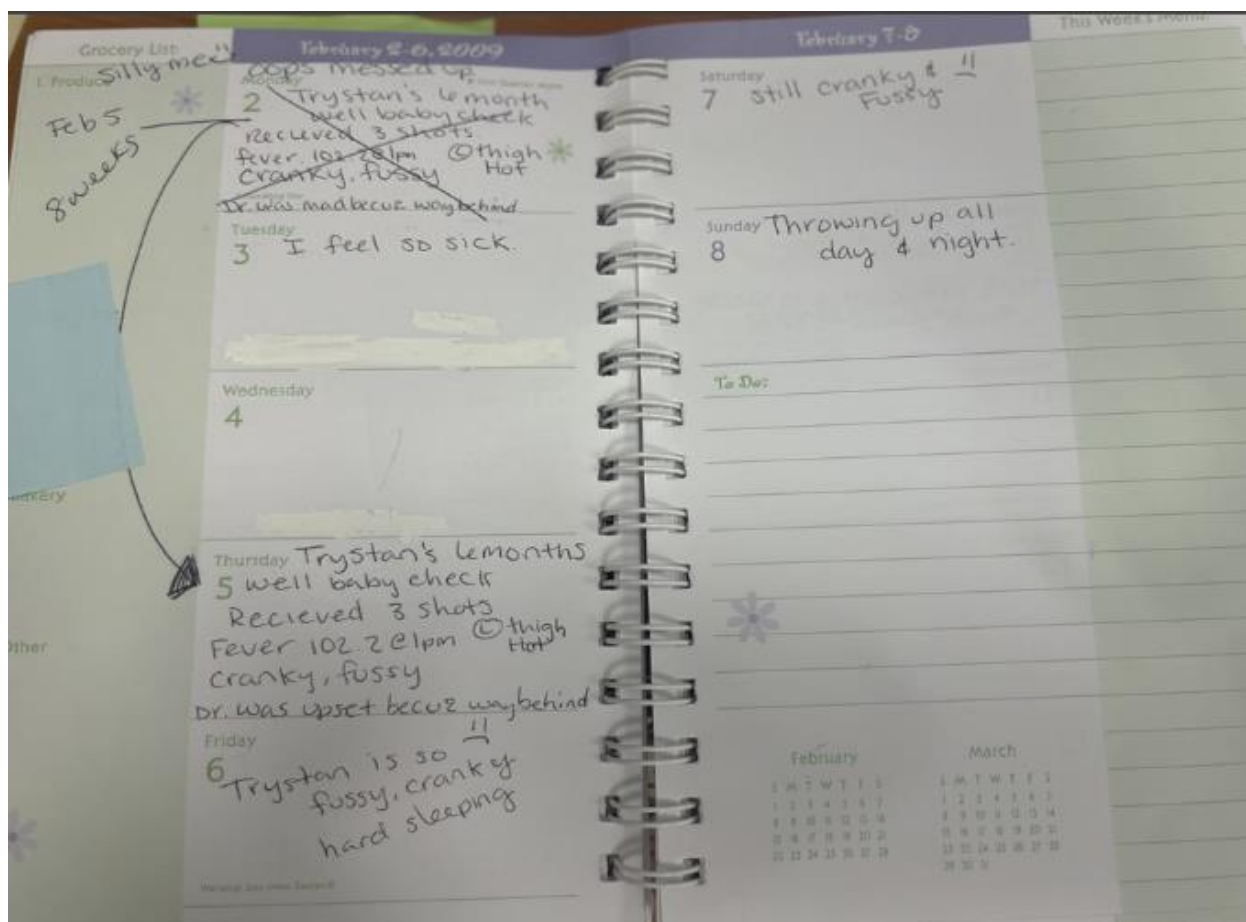 Grocery List
1. Produce
Silly me
Feb 5
8 weeks
Bakery
Other
February 2-6, 2009
oops messed up
Monday
2 Trystan's 6 month
well baby check
Recieved 3 shots
fever 102.2 @ 1pm Ⓛ thigh
Cranky, fussy Hot
Dr. was mad becuz way behind
Tuesday
3 I feel so sick.
Wednesday
4
Thursday Trystan's 6 months
5 well baby check
Recieved 3 shots
Fever 102.2 @ 1pm Ⓛ thigh
Hot
cranky, fussy
Dr. was upset becuz way behind
Friday
6 Trystan is so
fussy, cranky
hard sleeping
February 7-8
Saturday
7 still cranky &
Fussy
Sunday Throwing up all
8 day & night.
To Do:
February
S M T W T F S
1 2 3 4 5 6 7
8 9 10 11 12 13 14
15 16 17 18 19 20 21
22 23 24 25 26 27 28
March
S M T W T F S
1 2 3 4 5 6 7
8 9 10 11 12 13 14
15 16 17 18 19 20 21
22 23 24 25 26 27 28
29 30 31
This Week's Menu: